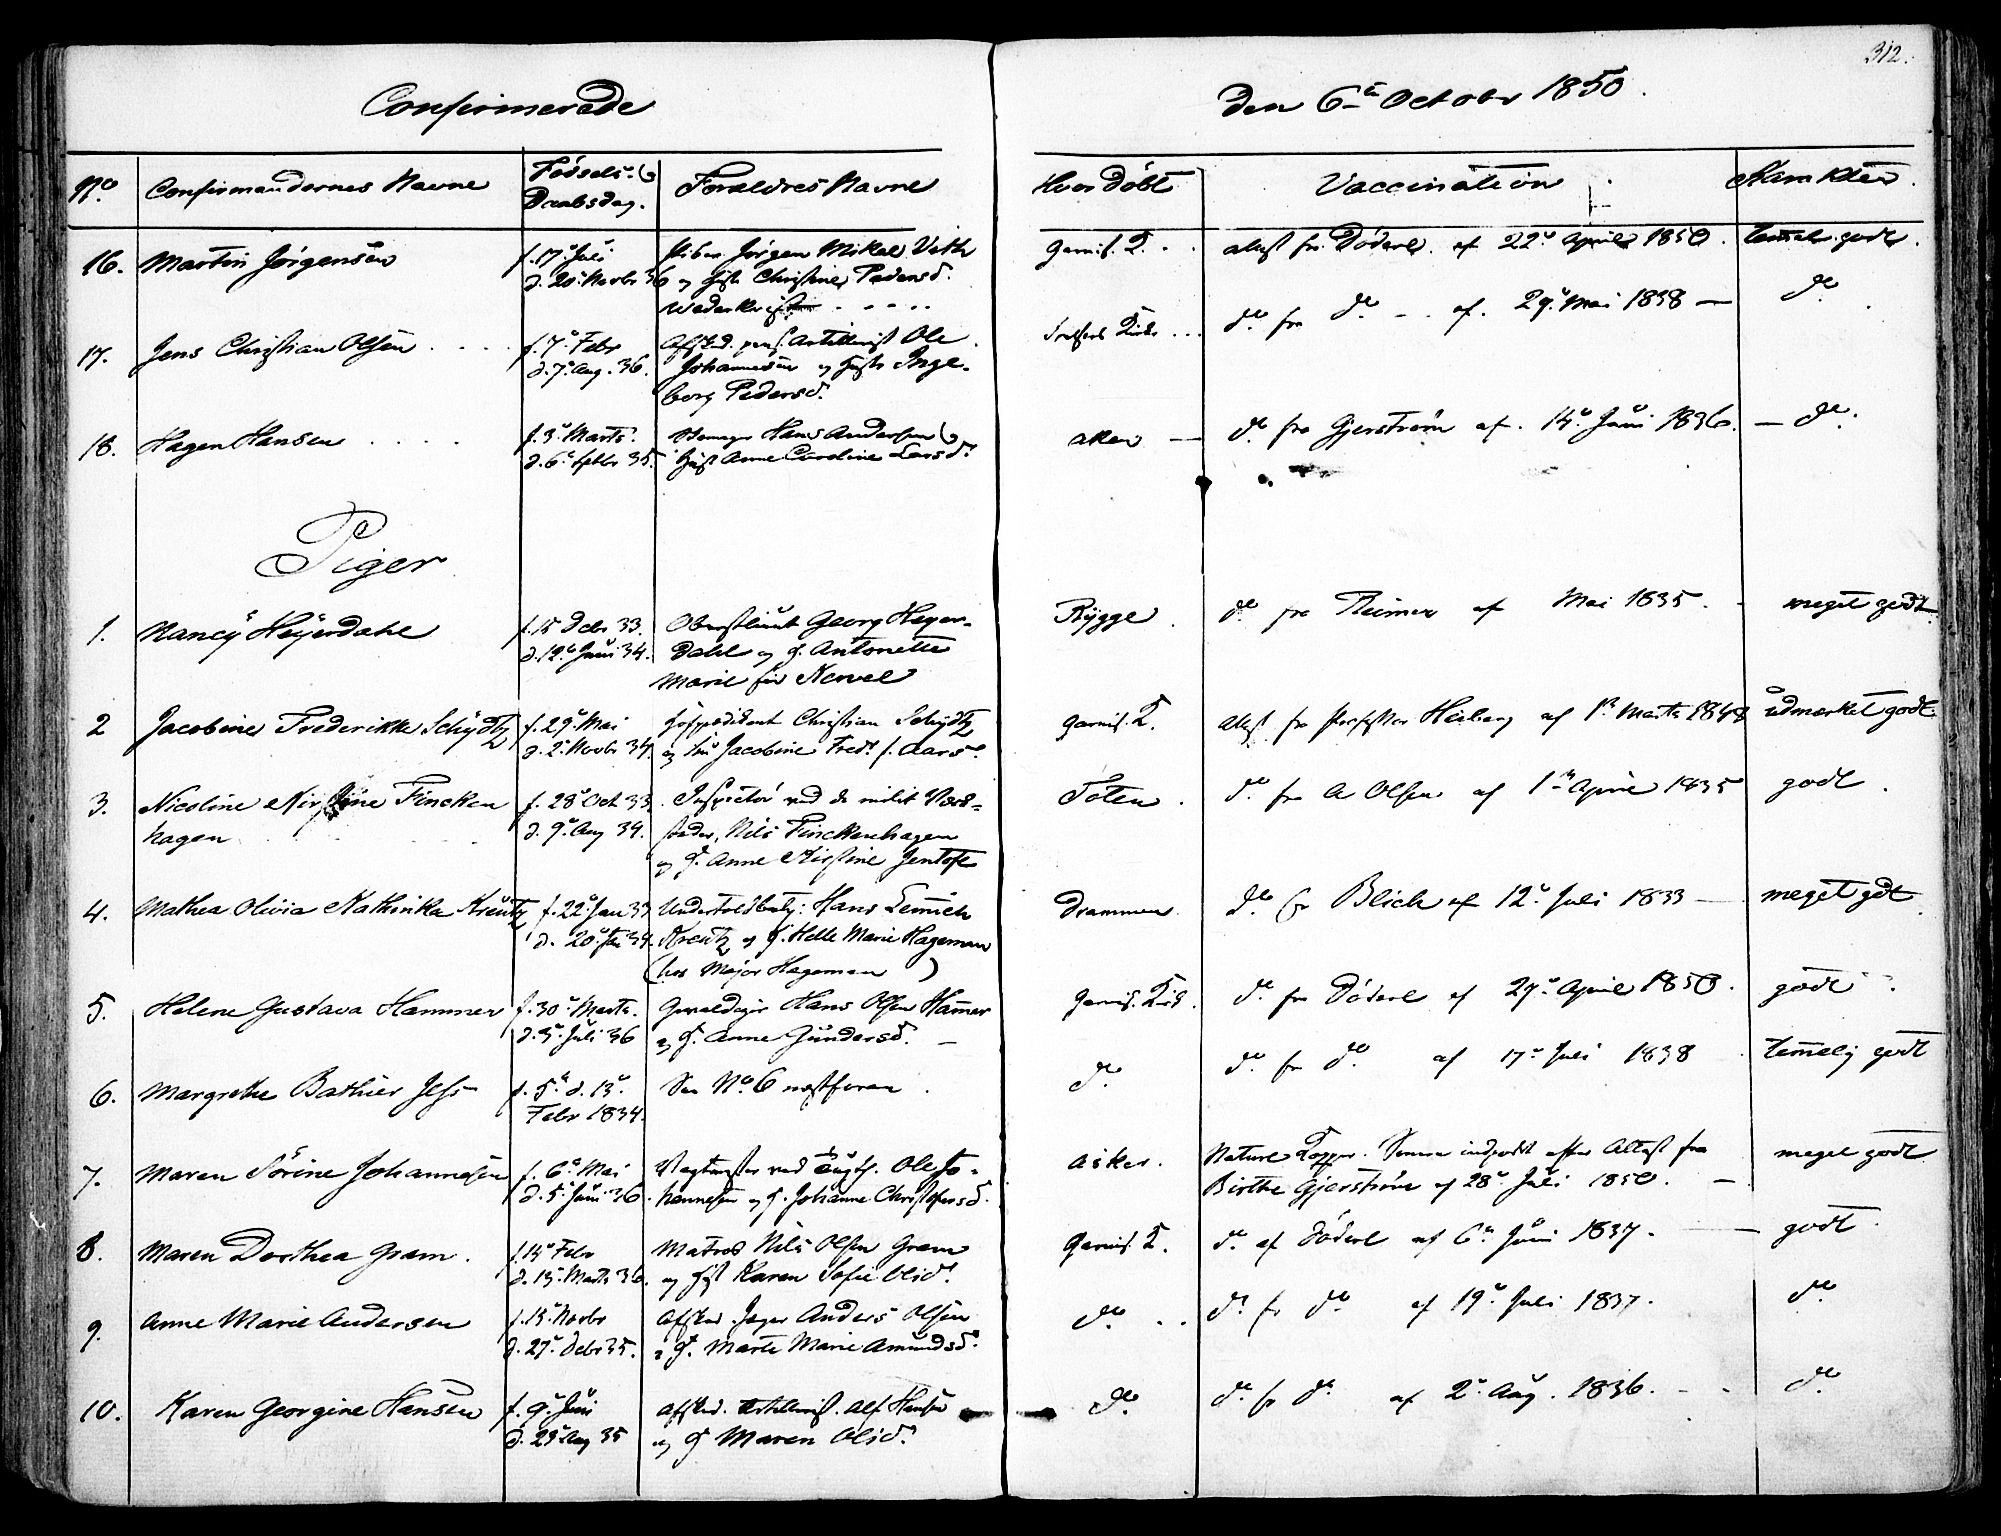 312.
Confirmerede
Den 6te October 1850.
No.
Confirmandernes Navne
Fødsels- og
Daabsdag.
Forældres Navne
Hvor døbt
Vaccination
Karakter.
16. Martin Jørgensen
f. 17de Juli
d. 20de Novbr 36
Jørgen Mikael Veth
og Christine Pedersd.
Garnis. K.
attest fr. Døderl. af 22de April 1850.
temel. godt.
17. Jens Christian Olsen
f. 7de Febr
d. 7de Aug. 36.
Afsked. pens. Artillerist Ole
Johannesen og Inge-
borg Pedersd.
do fra do af. 29de Mai 1838 —
do
18. Hagen Hansen
f. 3de Marts
d. 6te Septbr 35.
Hans Andersen og
Anne Caroline Larsd.
Aker —
do fra Gjerstrøm af. 14de Juni 1836.
— do.
Piger
1. Nancy Heyerdahl
f. 15 Debr 33.
d. 12te Juni 34.
Oberstlieut Georg Heyer-
dahl og H. Antonette
Marie før Nervel
Rygge.
do fra af Mai 1835.
meget godt
2 Jacobine Frederikke Schydtz
f. 29de Mai
d. 2de Novbr 34.
Christian Schydtz
og Jacobine Fred. f. Aars.
Garnis. K.
attest fra Professor Heiberg af 1ste Marts
udmærket godt
3. Nicoline Kirstine Fincken
hagen
f. 28de Oct 33.
d. 9de Aug 34.
Inspector ved de milit
Nils Finckenhagen
og H. Anne Kirstine Jentoft
Toten.
do fra A Olsen af 1ste April 1835
godt.
4. Mathea Olivia Kathinka Kreutz
f. 22de Jan 33
d. 20de
Hans Lemmich
Kreutz og H. Helle Marie Hageman
(hos Major Hageman )
Drammen.
do fr Blich af 12te Juli 1833 —
meget godt.
5. Helene Gustava Hammer
f. 30te Marts.
d. 3de Juli 36
Gevaldiger Hans Olsen Hammer
og H. Anne Gundersd. —
Garnis. Kirk.
do fra Døderl af 27de April 1850.
godt.
6. Margrethe Bathier
f. 5te d. 13de
Febr 1834.
See No 6 næstforan.
do.
do fra do af 17de Juli 1838
temelig godt
7. Maren Sørine Johannesen
f. 6te Mai
d. 5te Juni 36.
Vagtmester ved Tugth. Ole Jo-
hannesen og H. Johanne Christofersd.
Asker.
Naturl. Kopper. Senere indpodt efter Attest fra
Birthe Gjerstrøm af 28de Juli 1850. —
meget godt
8. Maren Dorthea Gram.
f. 14de Febr
d. 13de Marts 36.
Matros Nils Olsen Gram
og Karen Sofie Olsd.
Garnis. K.
do af Døderl af 6te Juni 1837. —
godt.
9. Anne Marie Andersen
f. 13de Novbr
d. 27de Debr 35.
Afsked. Jæger Anders Olsen
og H. Marte Marie Amundsd.
do.
do fr do af 19de Juli 1837.
do
10. Karen Georgine Hansen
f. 9de Juni
d. 23de Aug 35
Afsked. Artillerist. Alf Hansen
og H Maren Olsd.
do.
do fr do af 2de Aug. 1836.
do